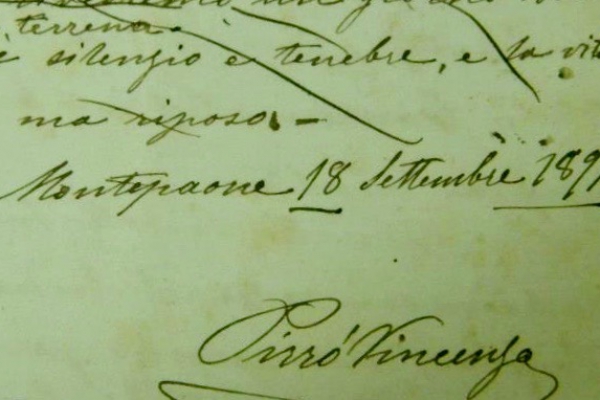 un giorno
terrena.
è silenzio e tenebre, e la vit
ma riposa. -
Montepaone 18 Settembre 189
Pirrò Vincenzo